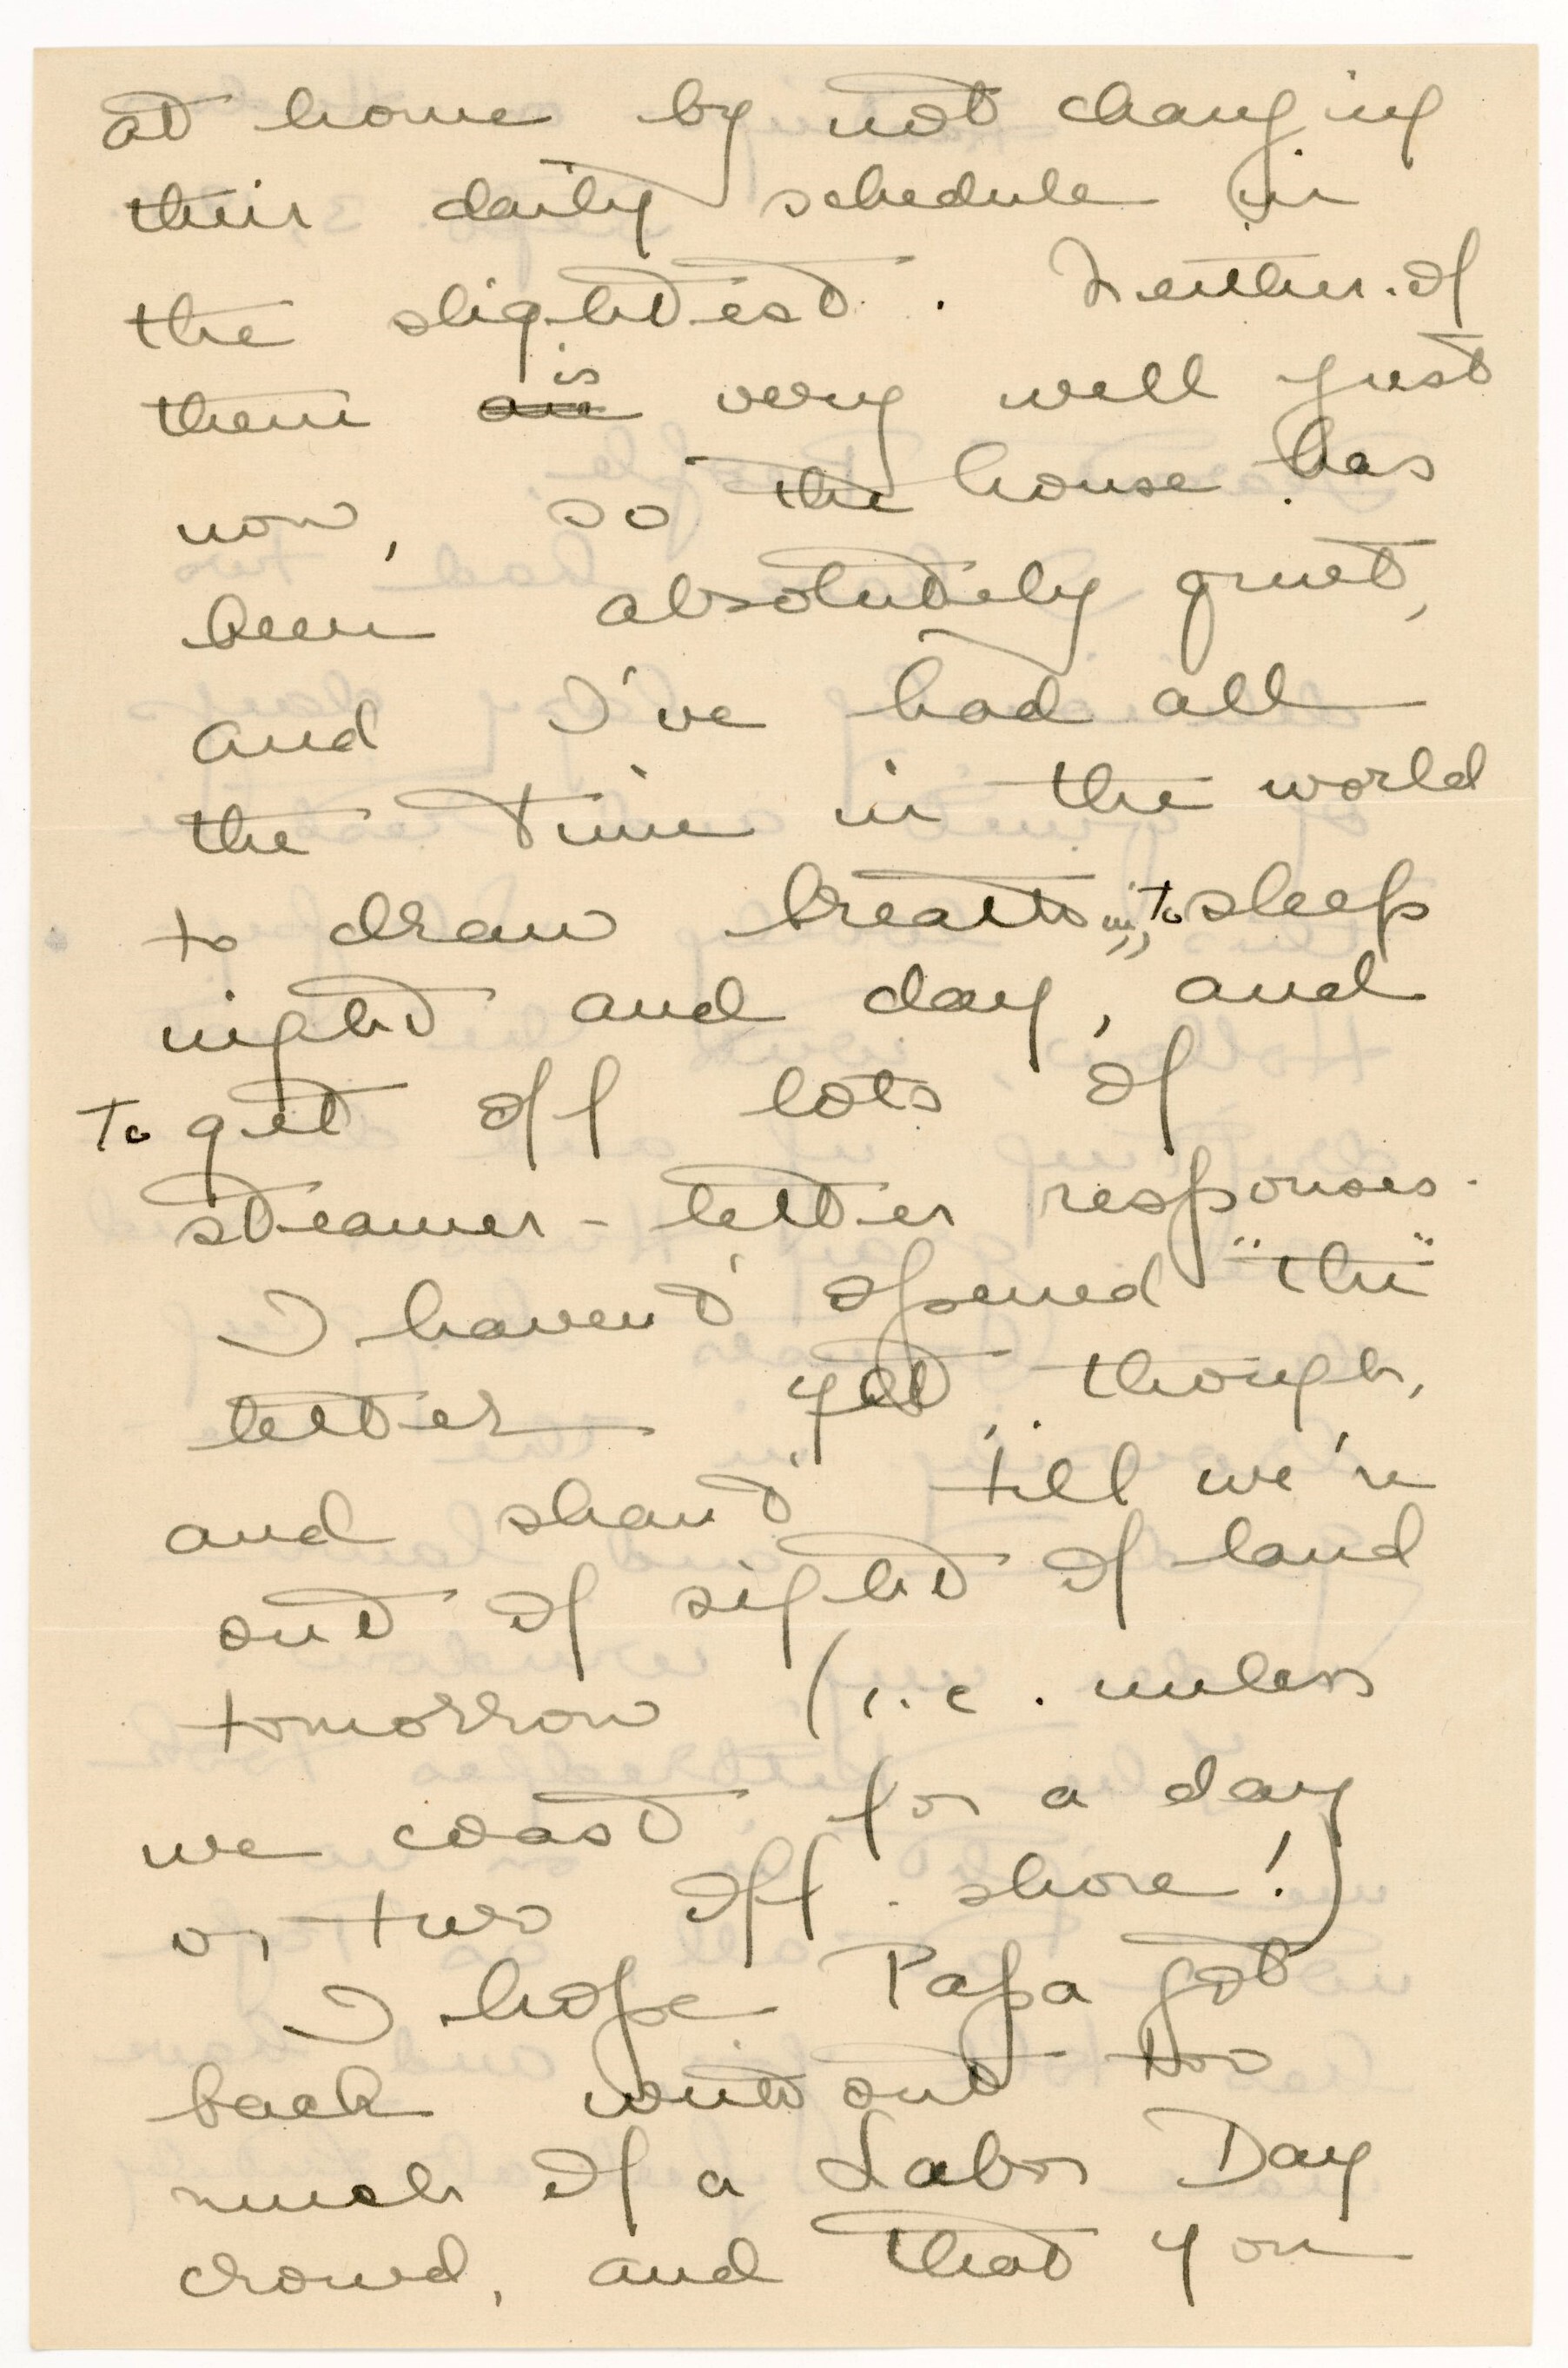 at home by not changing
their daily schedule in
the slightest. Neither of
them are is very well just
now, so the house has
been absolutely quiet,
and I've had all
the time in the world
to draw breath in, to sleep
night and day, and
to get off lots of
steamer-letter responses.
I haven't opened "the"
letter yet, though,
and shan't till we're
out of sight of land
tomorrow (i.e. unless
we coast for a day
or two off shore!)
I hope Papa got
back without too
much of a Labor Day
crowd, and that you